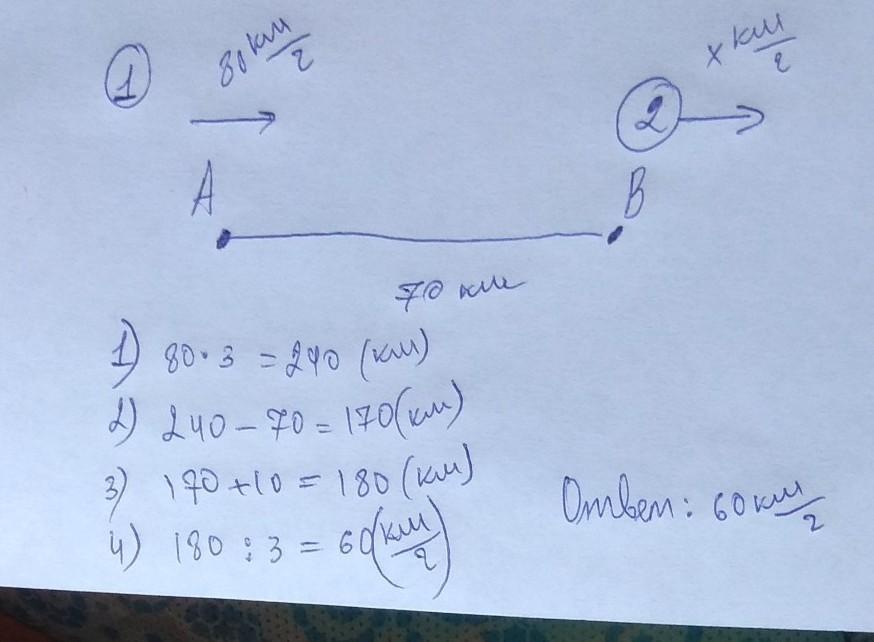 1 80 км/ч 2 x км/ч
A B
70 км
1) 80·3 = 240 (км)
2) 240 - 70 = 170 (км)
3) 170 + 10 = 180 (км)
4) 180 : 3 = 60 (км/ч)
Ответ: 60 км/ч